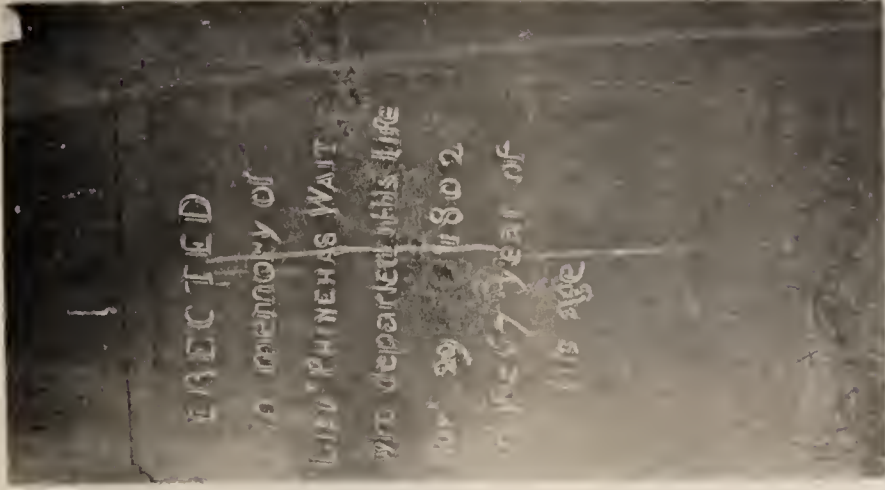 ERECTED
in memory of
PHINEHAS WAIT
who departed this Life
1802
year of
his age